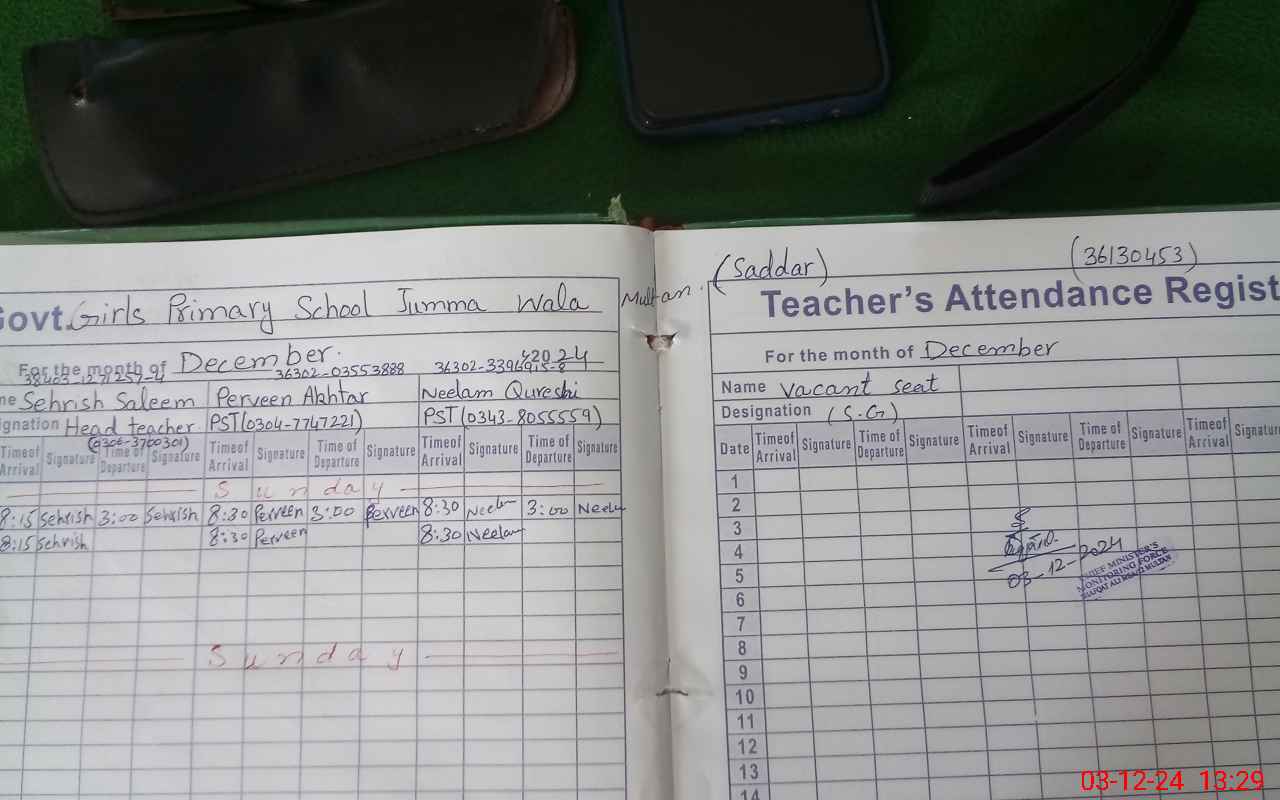 Govt. Girls Primary School Jumma Wala Multan.
For the month of December. 2024
36302-03553888 36302-3396915-8
Sehrish Saleem Perveen Akhtar Neelam Qureshi
Head teacher PST(0304-7747221) PST(0343-8055559)
(0306-3700301)
Time of Arrival Signature Time of Departure Signature Time of Arrival Signature Time of Departure Signature Time of Arrival Signature Time of Departure Signature
Sunday
8:15 Sehrish 3:00 Sehrish 8:30 Perveen 3:00 Perveen 8:30 Neelam 3:00 Neelam
8:15 Sehrish 8:30 Perveen 8:30 Neelam
Sunday
(Saddar) (36130453)
Teacher's Attendance Regist
For the month of December
Name vacant seat
Designation (S.G)
Date Time of Arrival Signature Time of Departure Signature Time of Arrival Signature Time of Departure Signature Time of Arrival Signature
1
2
3
4
5
6
7
8
9
10
11
12
13
14
03-12-2024
CHIEF MINISTER'S
MONITORING FORCE
03-12-24 13:29